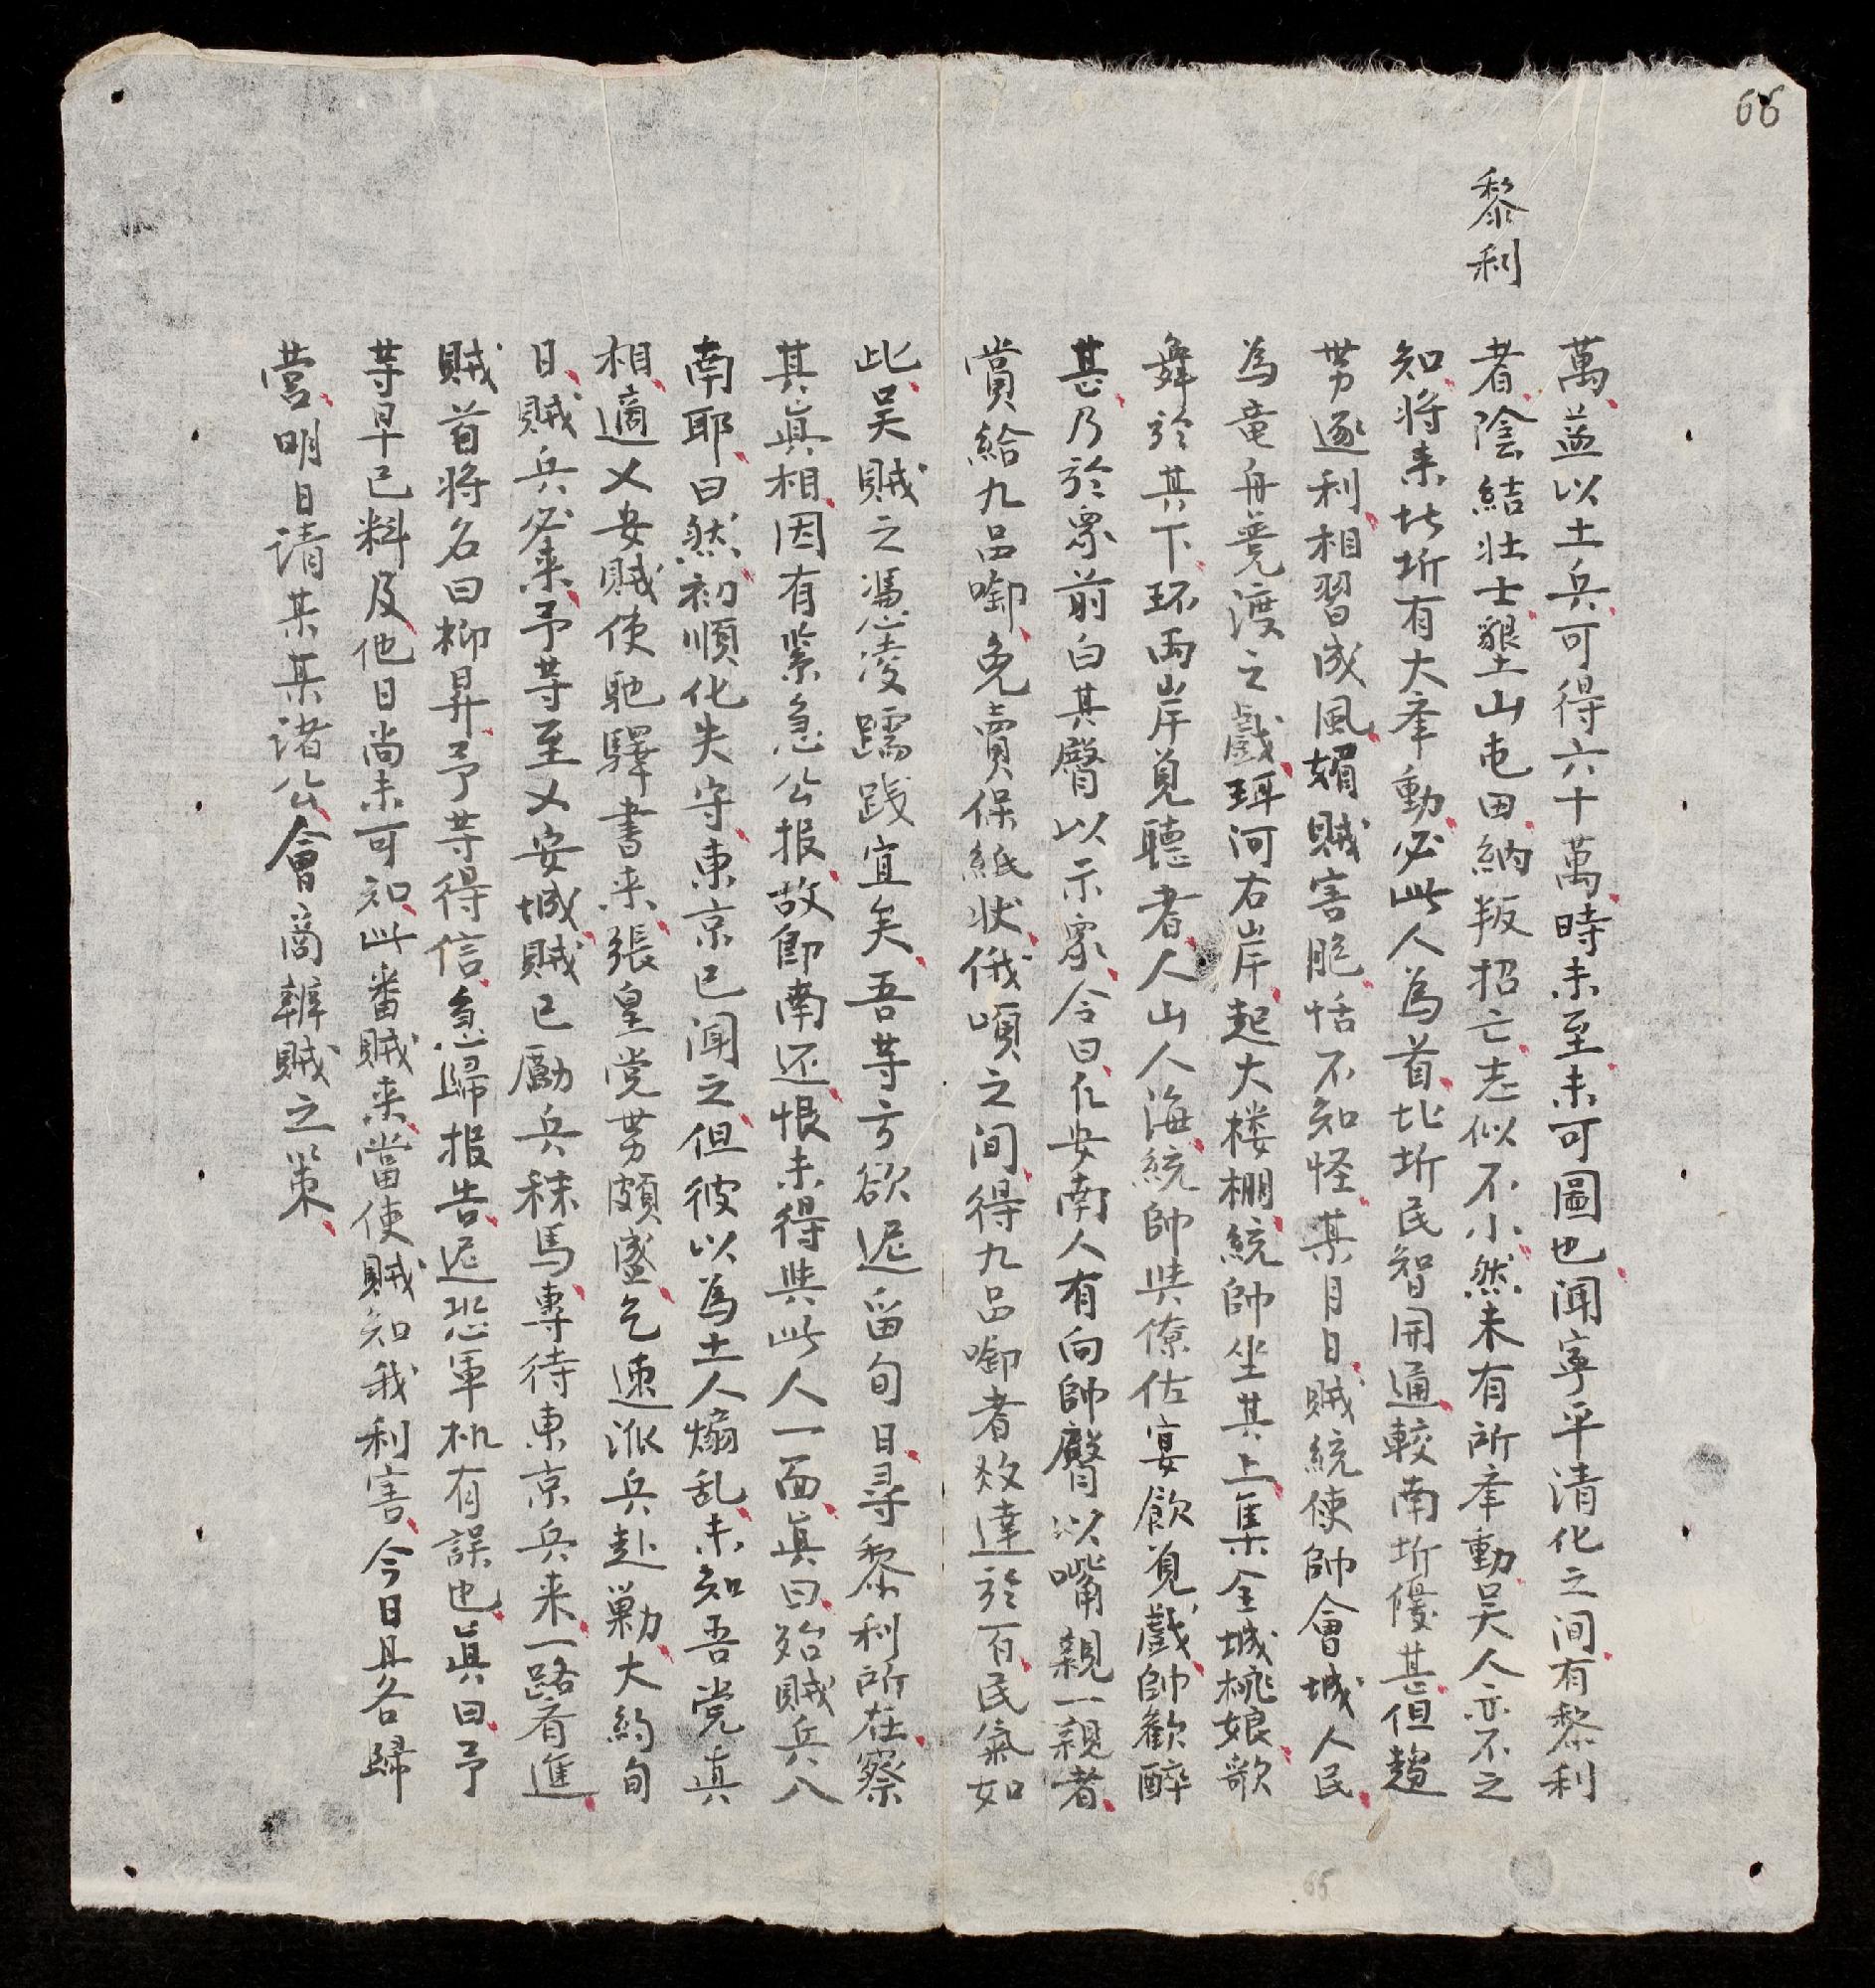 66
黎利
萬益以土兵可得六十萬時未至未可圖也聞寧平清化之间有黎利
者陰結壮士墾山屯田納叛招亡志似不小然未有所牽動吴人亦不之
知将来北圻有大牽動必此人為首北圻民智開通較南圻優甚但趋
势逐利相習成風媚賊害胞恬不知怪某月日賊統使帥會城人民
為竜舟竞渡之戲珥河右岸起大楼棚統帥坐其上集全城桃娘歌
舞於其下环两岸覓聴者人山人海統帥與僚佐宴飲覓戲帥歡醉
甚乃於眾前白其臀以示眾令曰伱安南人有向帥臀以嘴親一親者
賞給九品啣免賣保紙状俄頃之间得九品啣者欻達於百民氣如
此吴賊之憑凌蹂践宜矣吾等方欲迟畄旬日尋黎利所在察
其真相因有紧急公报故即南还恨未得與此人一面真曰始賊兵入
南耶曰然初順化失守東京已闻之但彼以為土人煽乱未知吾党真
相適乂安賊使馳驛書来張皇党势頗盛乞速派兵赴勦大約旬
日賊兵必来予等至乂安城賊已勵兵秣馬專待東京兵来一路肴進
賊首将名曰柳昇予等得信急歸报告迟恐軍机有誤也真曰予
等早已料及他日尚未可知此番賊来當使賊知我利害今日且各歸
营明日请某某诸公會商辦賊之策
65